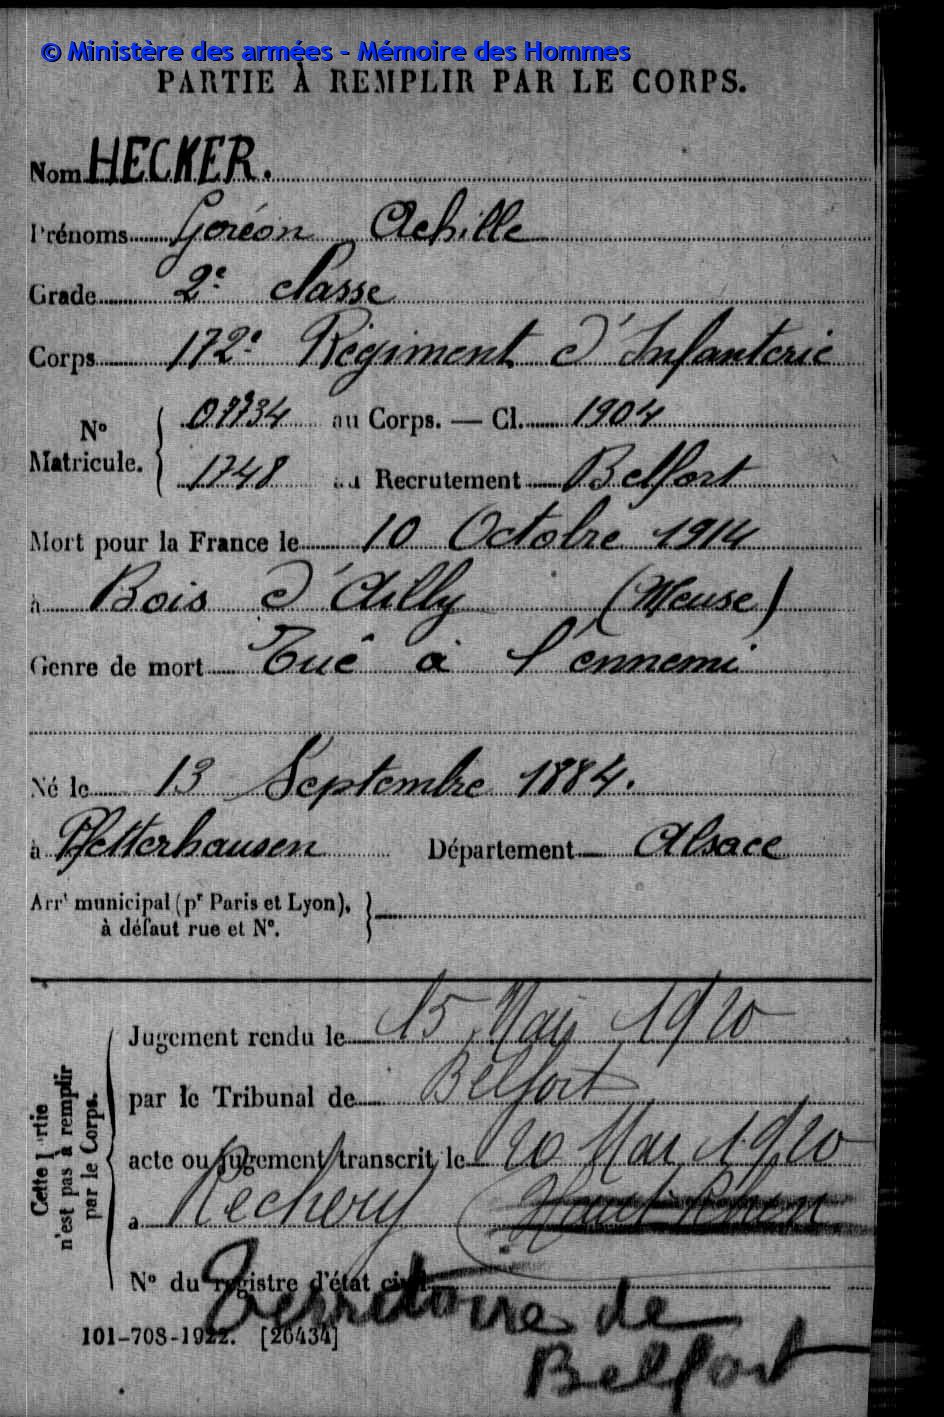 © Ministère des armées - Mémoire des Hommes
PARTIE À REMPLIR PAR LE CORPS.
Nom HECKER.
Prénoms Goréon Achille
Grade 2e classe
Corps 172e Régiment d'Infanterie
N° Matricule. 
au Corps. — Cl. 1904
1748 au Recrutement Belfort
Mort pour la France le 10 Octobre 1914
à Bois d'Ailly (Meuse)
Genre de mort Tué à l'ennemi
Né le 13 Septembre 1884.
à Pfetterhausen Département Alsace
Arrt municipal (pr Paris et Lyon),
à défaut rue et N°.
Cette partie
n'est pas à remplir
par le Corps.
Jugement rendu le 15 Mai 1920
par le Tribunal de Belfort
acte ou jugement transcrit le 20 Mai 1920
à Réchésy (Haut Rhin
N° du registre d'état civil
Territoire de
Belfort
101-708-1922. [26434]